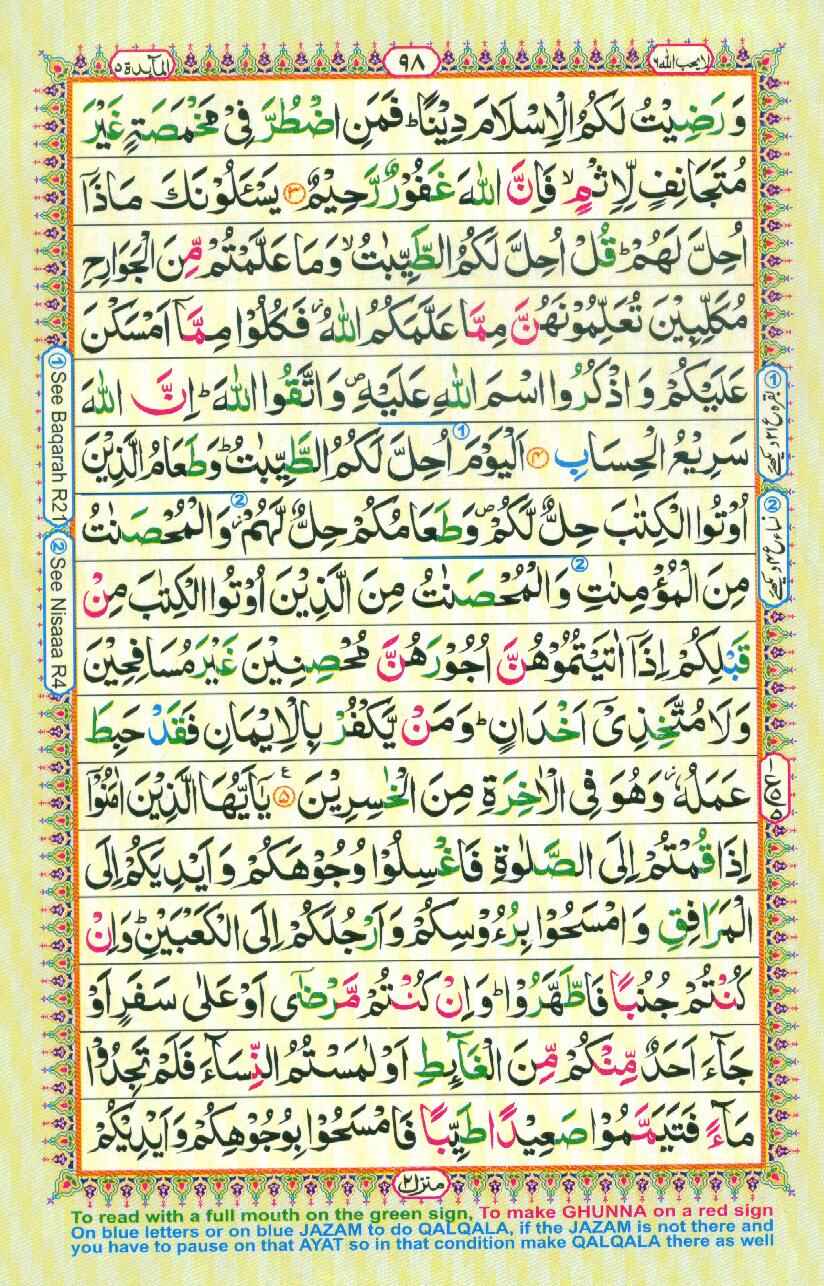 المآئدة ۵
۹۸
لا يحب الله ۶
وَرَضِيْتُ لَكُمُ الْاِسْلَامَ دِيْنًا ؕ فَمَنِ اضْطُرَّ فِيْ مَخْمَصَةٍ غَيْرَ
مُتَجَانِفٍ لِّاِثْمٍ ۙ فَاِنَّ اللّٰهَ غَفُوْرٌ رَّحِيْمٌ ۳ يَسْـَٔلُوْنَكَ مَاذَاۤ
اُحِلَّ لَهُمْ ؕ قُلْ اُحِلَّ لَكُمُ الطَّيِّبٰتُ ۙ وَمَا عَلَّمْتُمْ مِّنَ الْجَوَارِحِ
مُكَلِّبِيْنَ تُعَلِّمُوْنَهُنَّ مِمَّا عَلَّمَكُمُ اللّٰهُ ؗ فَكُلُوْا مِمَّاۤ اَمْسَكْنَ
عَلَيْكُمْ وَاذْكُرُوا اسْمَ اللّٰهِ عَلَيْهِ ۪ وَاتَّقُوا اللّٰهَ ؕ اِنَّ اللّٰهَ
سَرِيْعُ الْحِسَابِ ۴ اَلْيَوْمَ ① اُحِلَّ لَكُمُ الطَّيِّبٰتُ ؕ وَطَعَامُ الَّذِيْنَ
اُوْتُوا الْكِتٰبَ حِلٌّ لَّكُمْ ۪ وَطَعَامُكُمْ حِلٌّ لَّهُمْ ؗ ② وَالْمُحْصَنٰتُ
مِنَ الْمُؤْمِنٰتِ ② وَالْمُحْصَنٰتُ مِنَ الَّذِيْنَ اُوْتُوا الْكِتٰبَ مِنْ
قَبْلِكُمْ اِذَاۤ اٰتَيْتُمُوْهُنَّ اُجُوْرَهُنَّ مُحْصِنِيْنَ غَيْرَ مُسَافِحِيْنَ
وَلَا مُتَّخِذِيْۤ اَخْدَانٍ ؕ وَمَنْ يَّكْفُرْ بِالْاِيْمَانِ فَقَدْ حَبِطَ
عَمَلُهٗ ؗ وَهُوَ فِي الْاٰخِرَةِ مِنَ الْخٰسِرِيْنَ ۵ يٰۤاَيُّهَا الَّذِيْنَ اٰمَنُوْۤا
اِذَا قُمْتُمْ اِلَى الصَّلٰوةِ فَاغْسِلُوْا وُجُوْهَكُمْ وَاَيْدِيَكُمْ اِلَى
الْمَرَافِقِ وَامْسَحُوْا بِرُءُوْسِكُمْ وَاَرْجُلَكُمْ اِلَى الْكَعْبَيْنِ ؕ وَاِنْ
كُنْتُمْ جُنُبًا فَاطَّهَّرُوْا ؕ وَاِنْ كُنْتُمْ مَّرْضٰۤى اَوْ عَلٰى سَفَرٍ اَوْ
جَآءَ اَحَدٌ مِّنْكُمْ مِّنَ الْغَآئِطِ اَوْ لٰمَسْتُمُ النِّسَآءَ فَلَمْ تَجِدُوْا
مَآءً فَتَيَمَّمُوْا صَعِيْدًا طَيِّبًا فَامْسَحُوْا بِوُجُوْهِكُمْ وَاَيْدِيْكُمْ
① See Baqarah R21
② See Nisaaa R4
منزل ۲
To read with a full mouth on the green sign, To make GHUNNA on a red sign
On blue letters or on blue JAZAM to do QALQALA, if the JAZAM is not there and
you have to pause on that AYAT so in that condition make QALQALA there as well